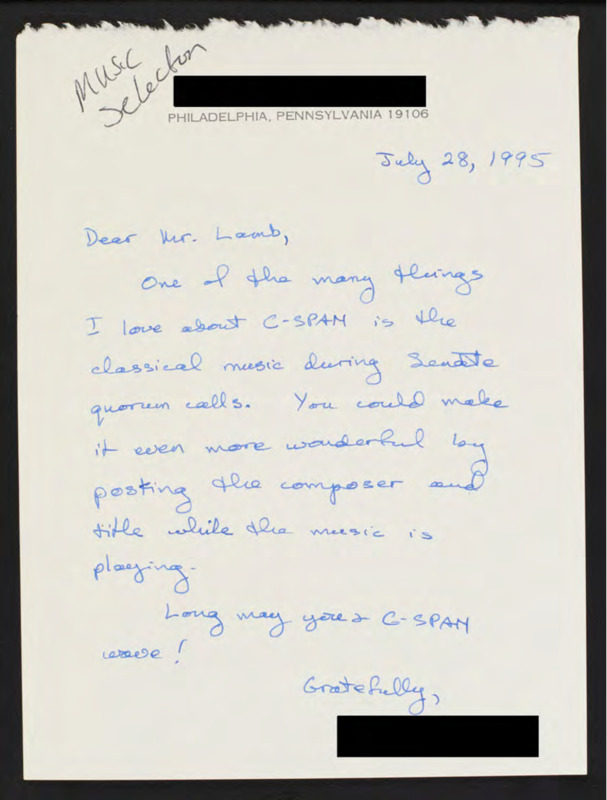 Music
Selection
PHILADELPHIA, PENNSYLVANIA 19106
July 28, 1995
Dear Mr. Lamb,
One of the many things
I love about C-SPAN is the
classical music during Senate
quorum calls. You could make
it even more wonderful by
posting the composer and
title while the music is
playing.
Long may you & C-SPAN
wave!
Gratefully,